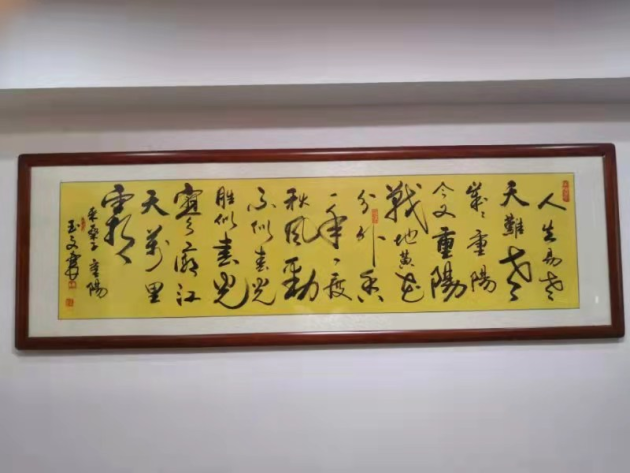 人生易老
天難老
歲々重陽
今又重陽
戰地黃花
分外香
一年一度
秋風勁
不似春光
勝似春光
寥廓江
天萬里
霜
采桑子 重陽
玉文